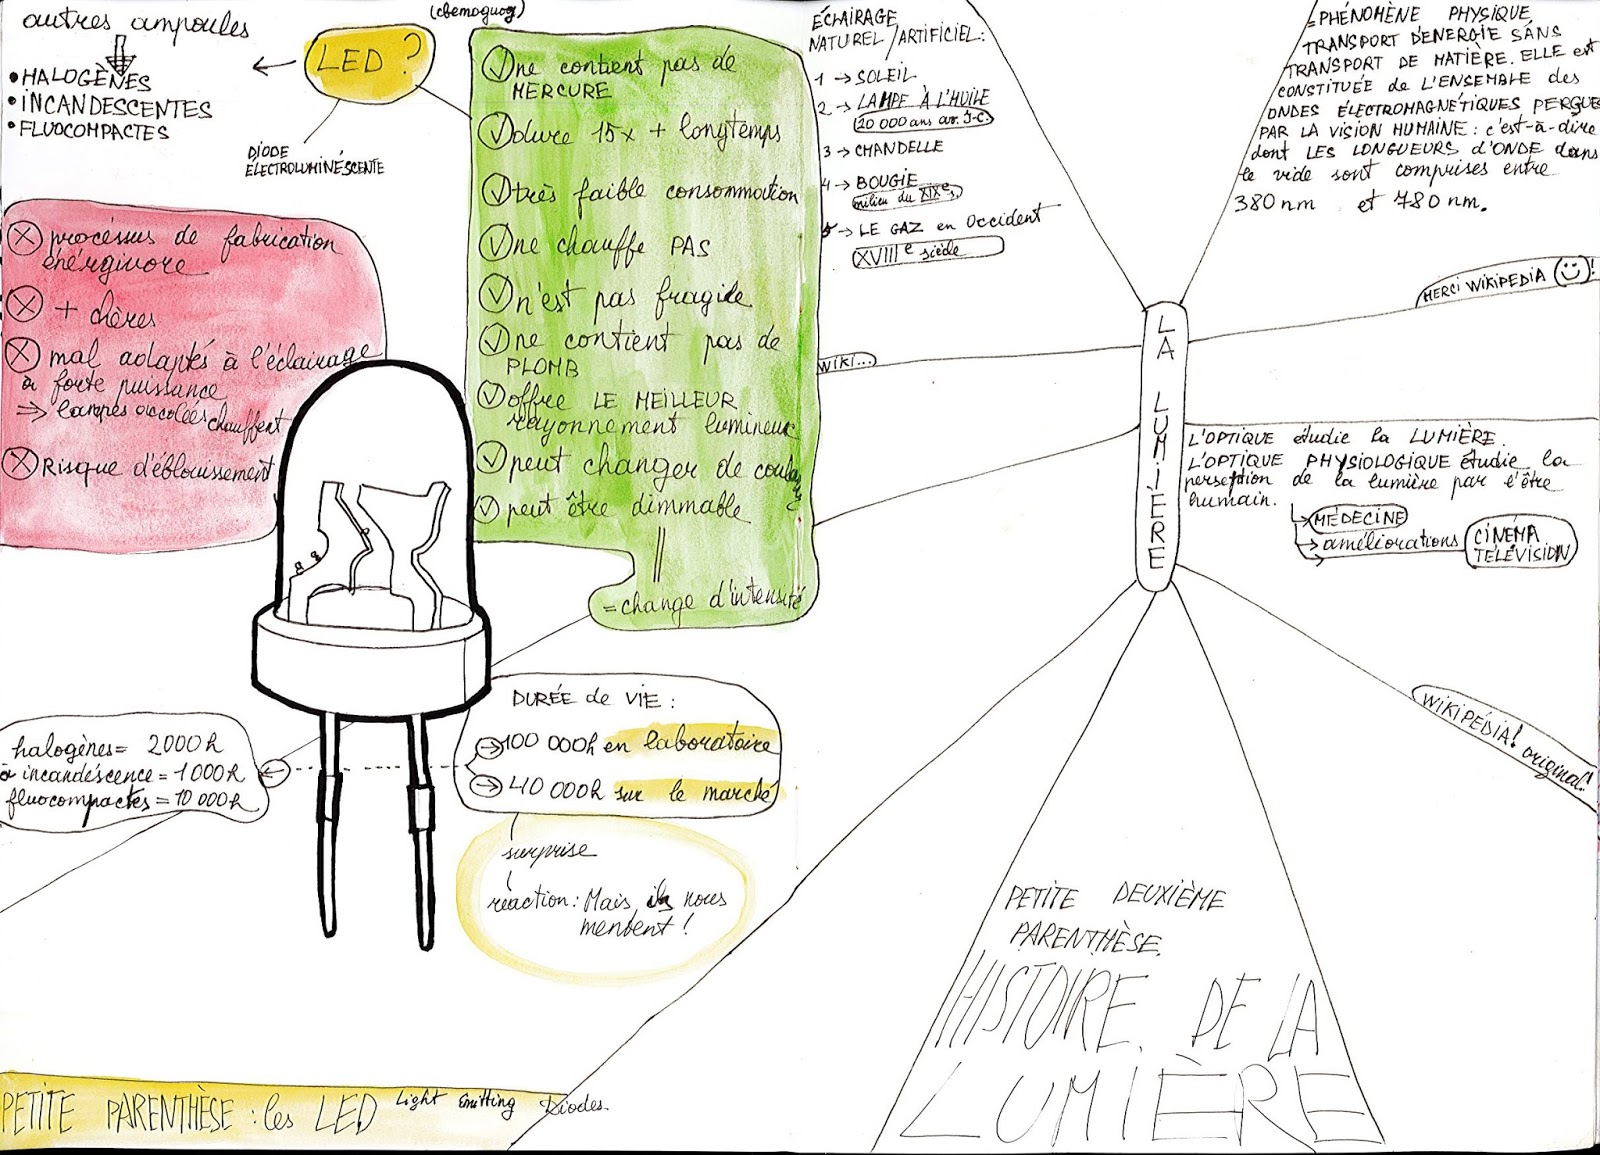 autres ampoules
• HALOGÈNES
• INCANDESCENTES
• FLUOCOMPACTES
LED ?
(светодиод)
DIODE
ÉLECTROLUMINÉSCENTE
ne contient pas de
MERCURE
dure 15x + longtemps
très faible consommation
ne chauffe PAS
n'est pas fragile
ne contient pas de
PLOMB
offre LE MEILLEUR
rayonnement lumineux
peut changer de couleur
peut être dimmable
= change d'intensité
processus de fabrication
énérgivore
+ chères
mal adaptés à l'éclairage
à forte puissance
⇒ lampes accolées chauffent
RISQUE d'éblouissement
DURÉE de VIE :
→ 100 000h en laboratoire
→ 40 000h sur le marché
halogènes = 2000h
à incandéscence = 1000h
fluocompactes = 10 000h
surprise
réaction : Mais ils nous
mentent !
PETITE PARENTHÈSE : les LED Light Emitting Diodes.
ÉCLAIRAGE
NATUREL / ARTIFICIEL :
1 → SOLEIL
2 → LAMPE À L'HUILE
20 000 ans av. J-C.
3 → CHANDELLE
4 → BOUGIE
milieu du XIXe s.
5 → LE GAZ en Occident
XVIIIe siècle
WIKI...
= PHÉNOMÈNE PHYSIQUE
TRANSPORT D'ENERGIE SANS
TRANSPORT DE MATIÈRE. ELLE est
CONSTITUÉE de L'ENSEMBLE des
ONDES ÉLECTROMAGNÉTIQUES PERÇUES
PAR LA VISION HUMAINE : c'est-à-dire
dont LES LONGUEURS d'ONDE dans
le vide sont comprises entre
380 nm et 780 nm.
MERCI WIKIPEDIA !
LA LUMIÈRE
L'OPTIQUE étudie la LUMIÈRE.
L'OPTIQUE PHYSIOLOGIQUE étudie la
perseption de la lumière par l'être
humain.
MÉDECINE
améliorations CINÉMA
TELÉVISION
WIKIPÉDIA! original!
PETITE DEUXIÈME
PARENTHÈSE.
HISTOIRE DE LA
LUMIÈRE